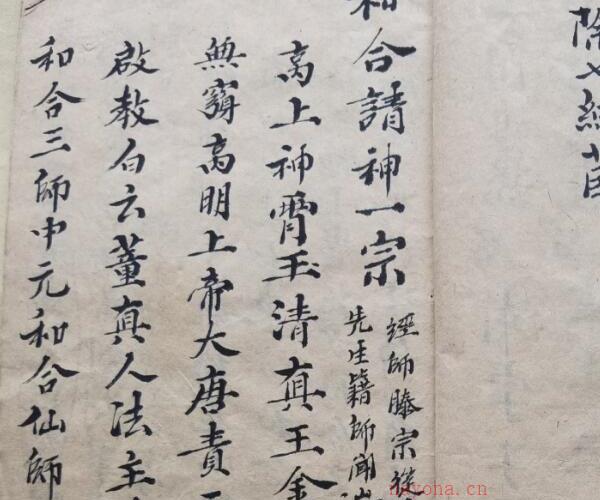 除
和合請神一宗
經師滕宗
先生籍師聞
高上神霄玉清真王金
無窮高明上帝大唐責
啟教白云董真人法主
和合三師中元和合仙師
nayona.cn